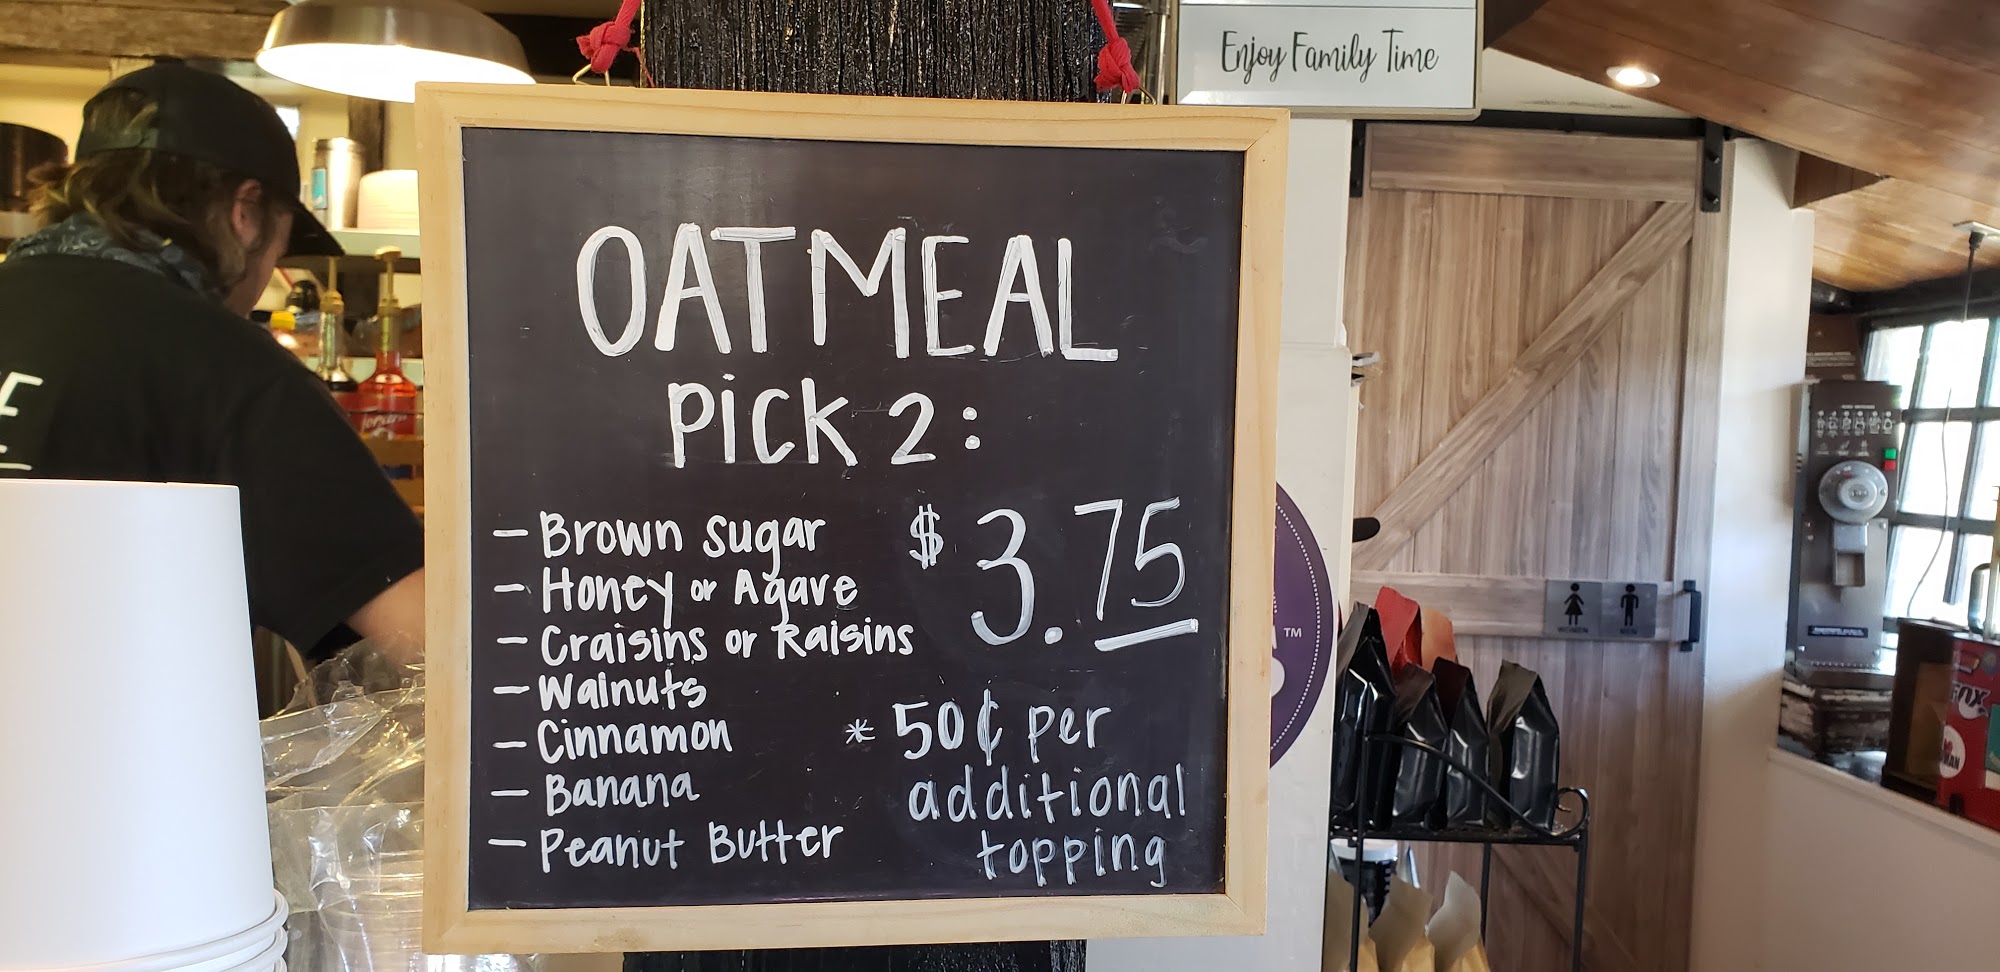 Enjoy Family Time
OATMEAL
PICK 2:
- Brown Sugar
- Honey or Agave
- Craisins or Raisins
- Walnuts
- Cinnamon
- Banana
- Peanut Butter
$3.75
* 50¢ per
additional
topping
TM
WOMEN
MEN
FOX
MAN
E
Torani